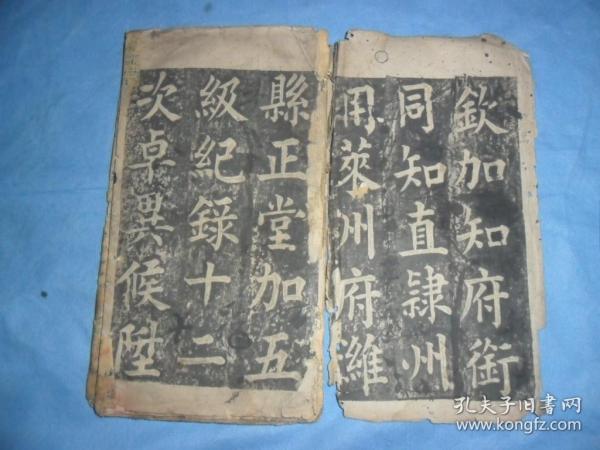 欽加知府銜
同知直隷州
用萊州府濰
縣正堂加五
級紀錄十二
次卓異候陞
孔夫子旧書网
www.kongfz.com